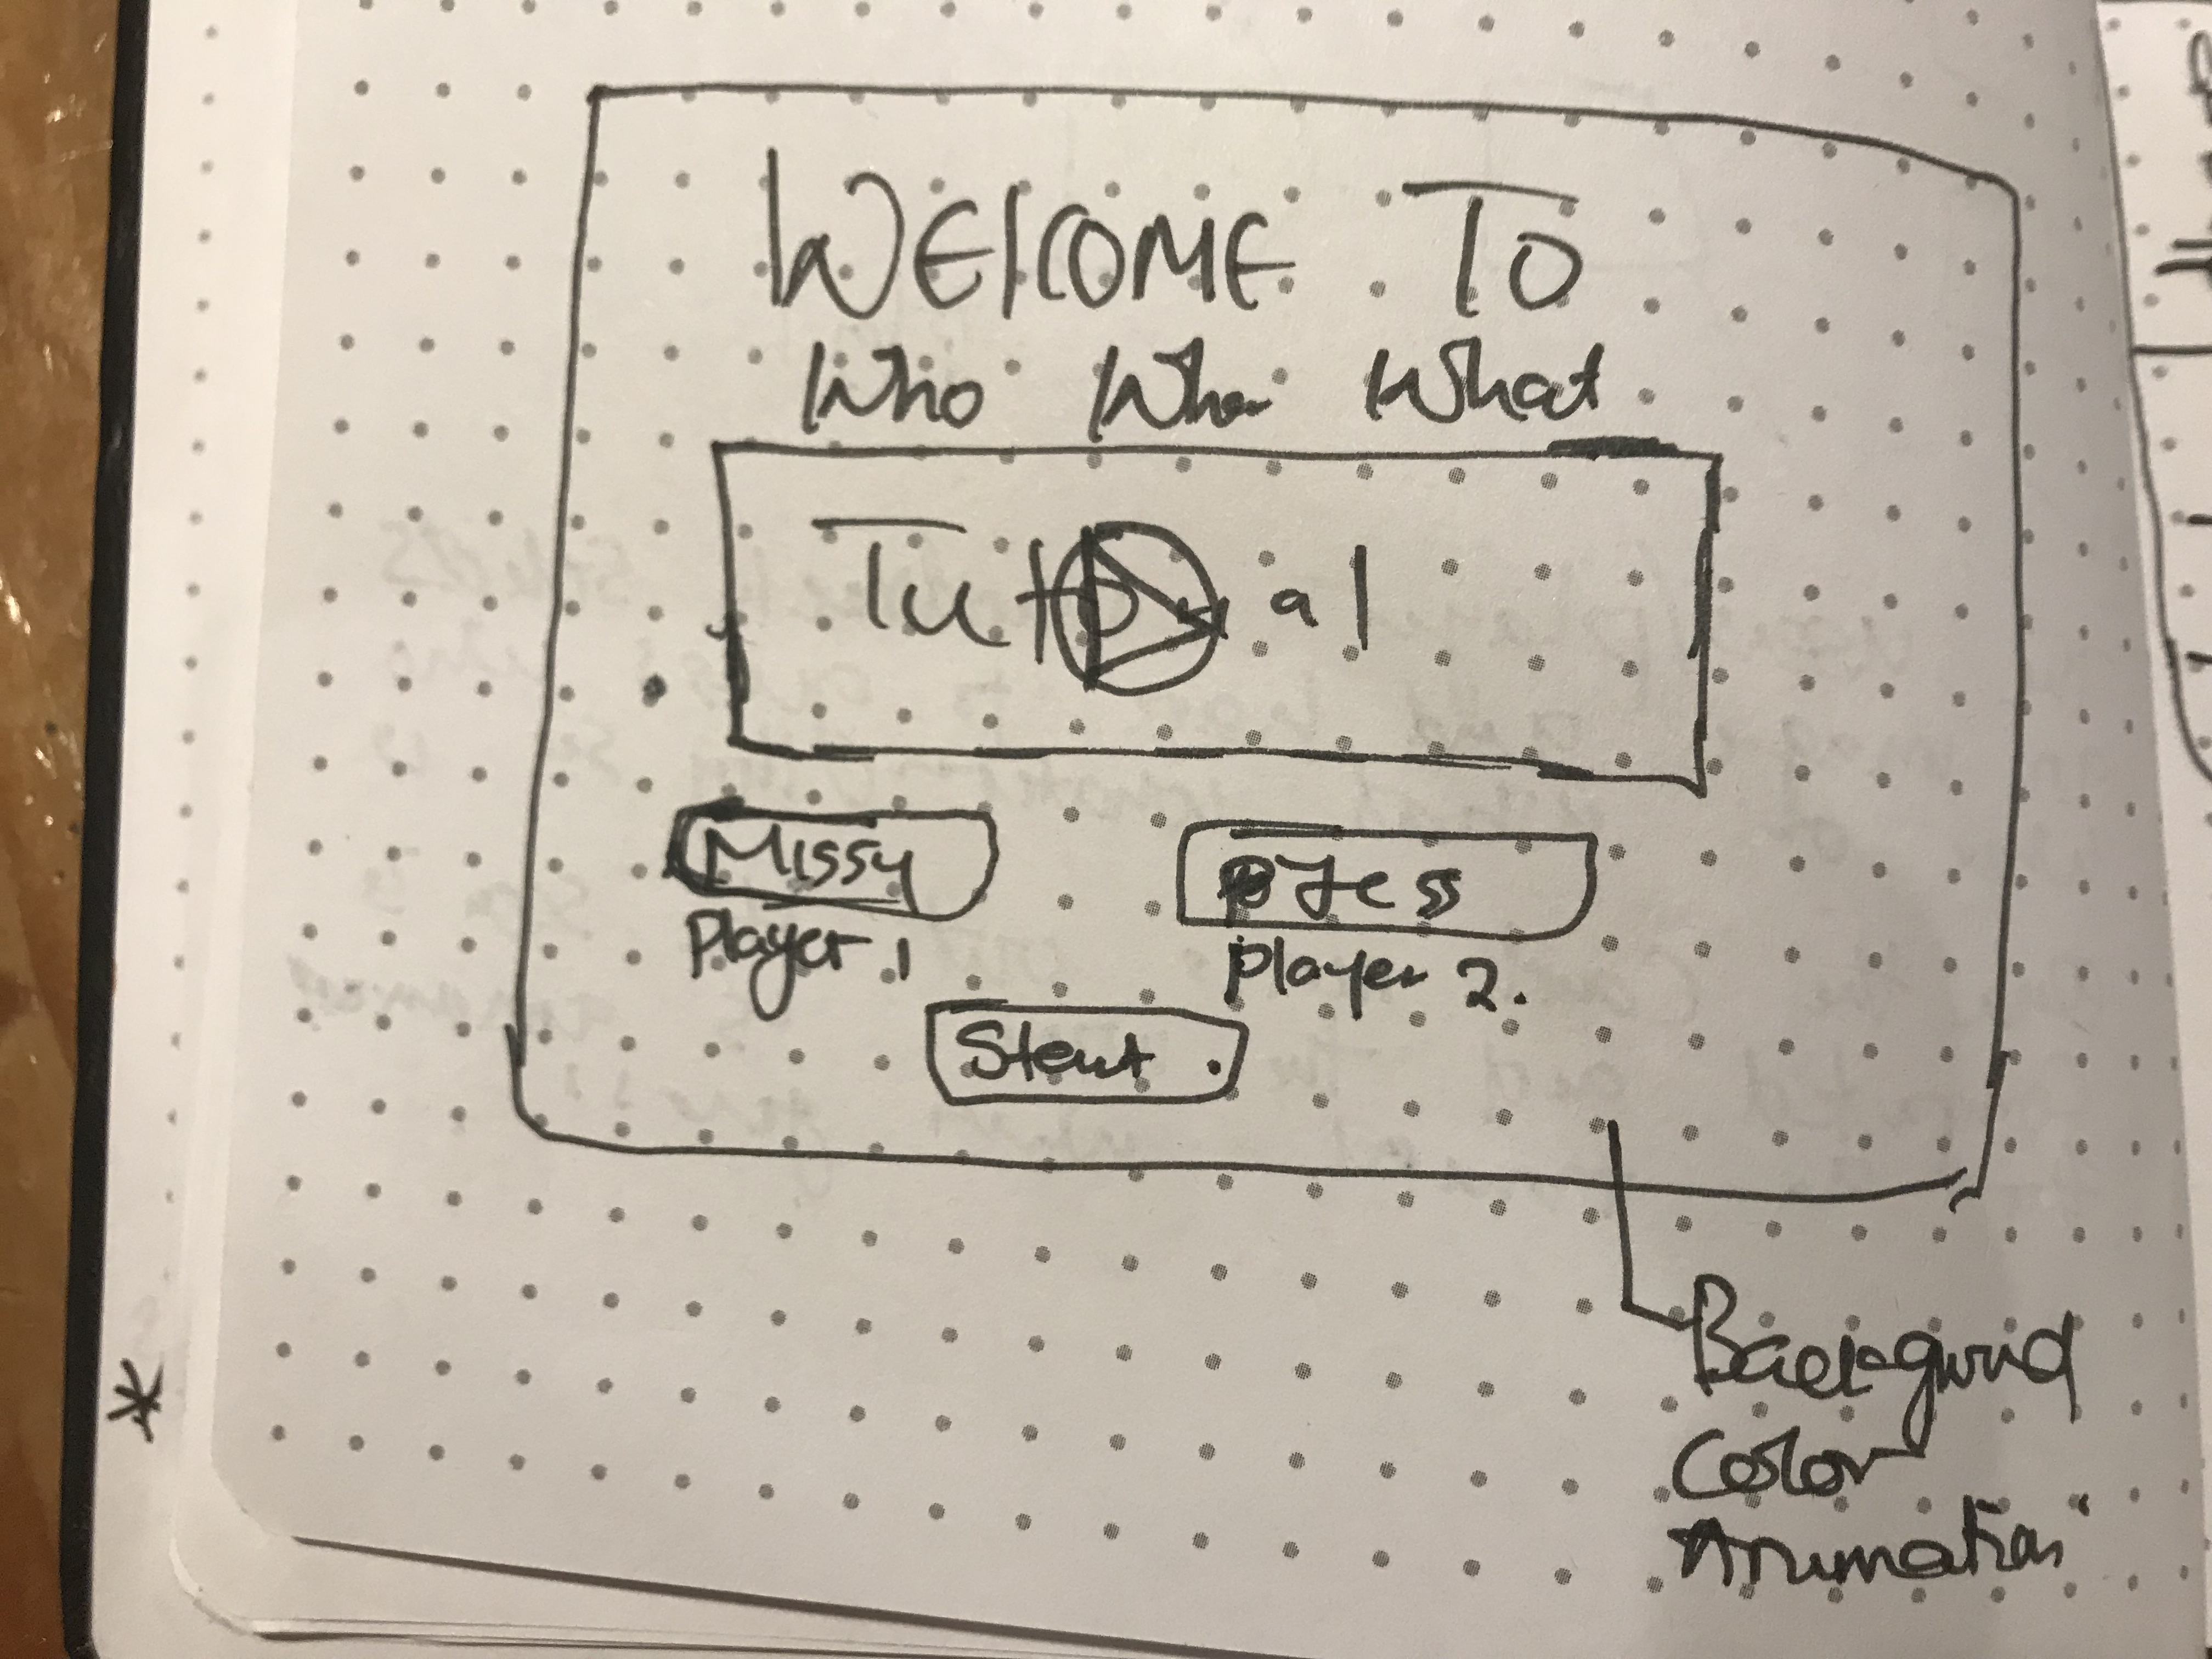 WElCOME TO
Who When What
Missy
Player 1
Jess
Player 2.
Start.
Background
Color
Animation